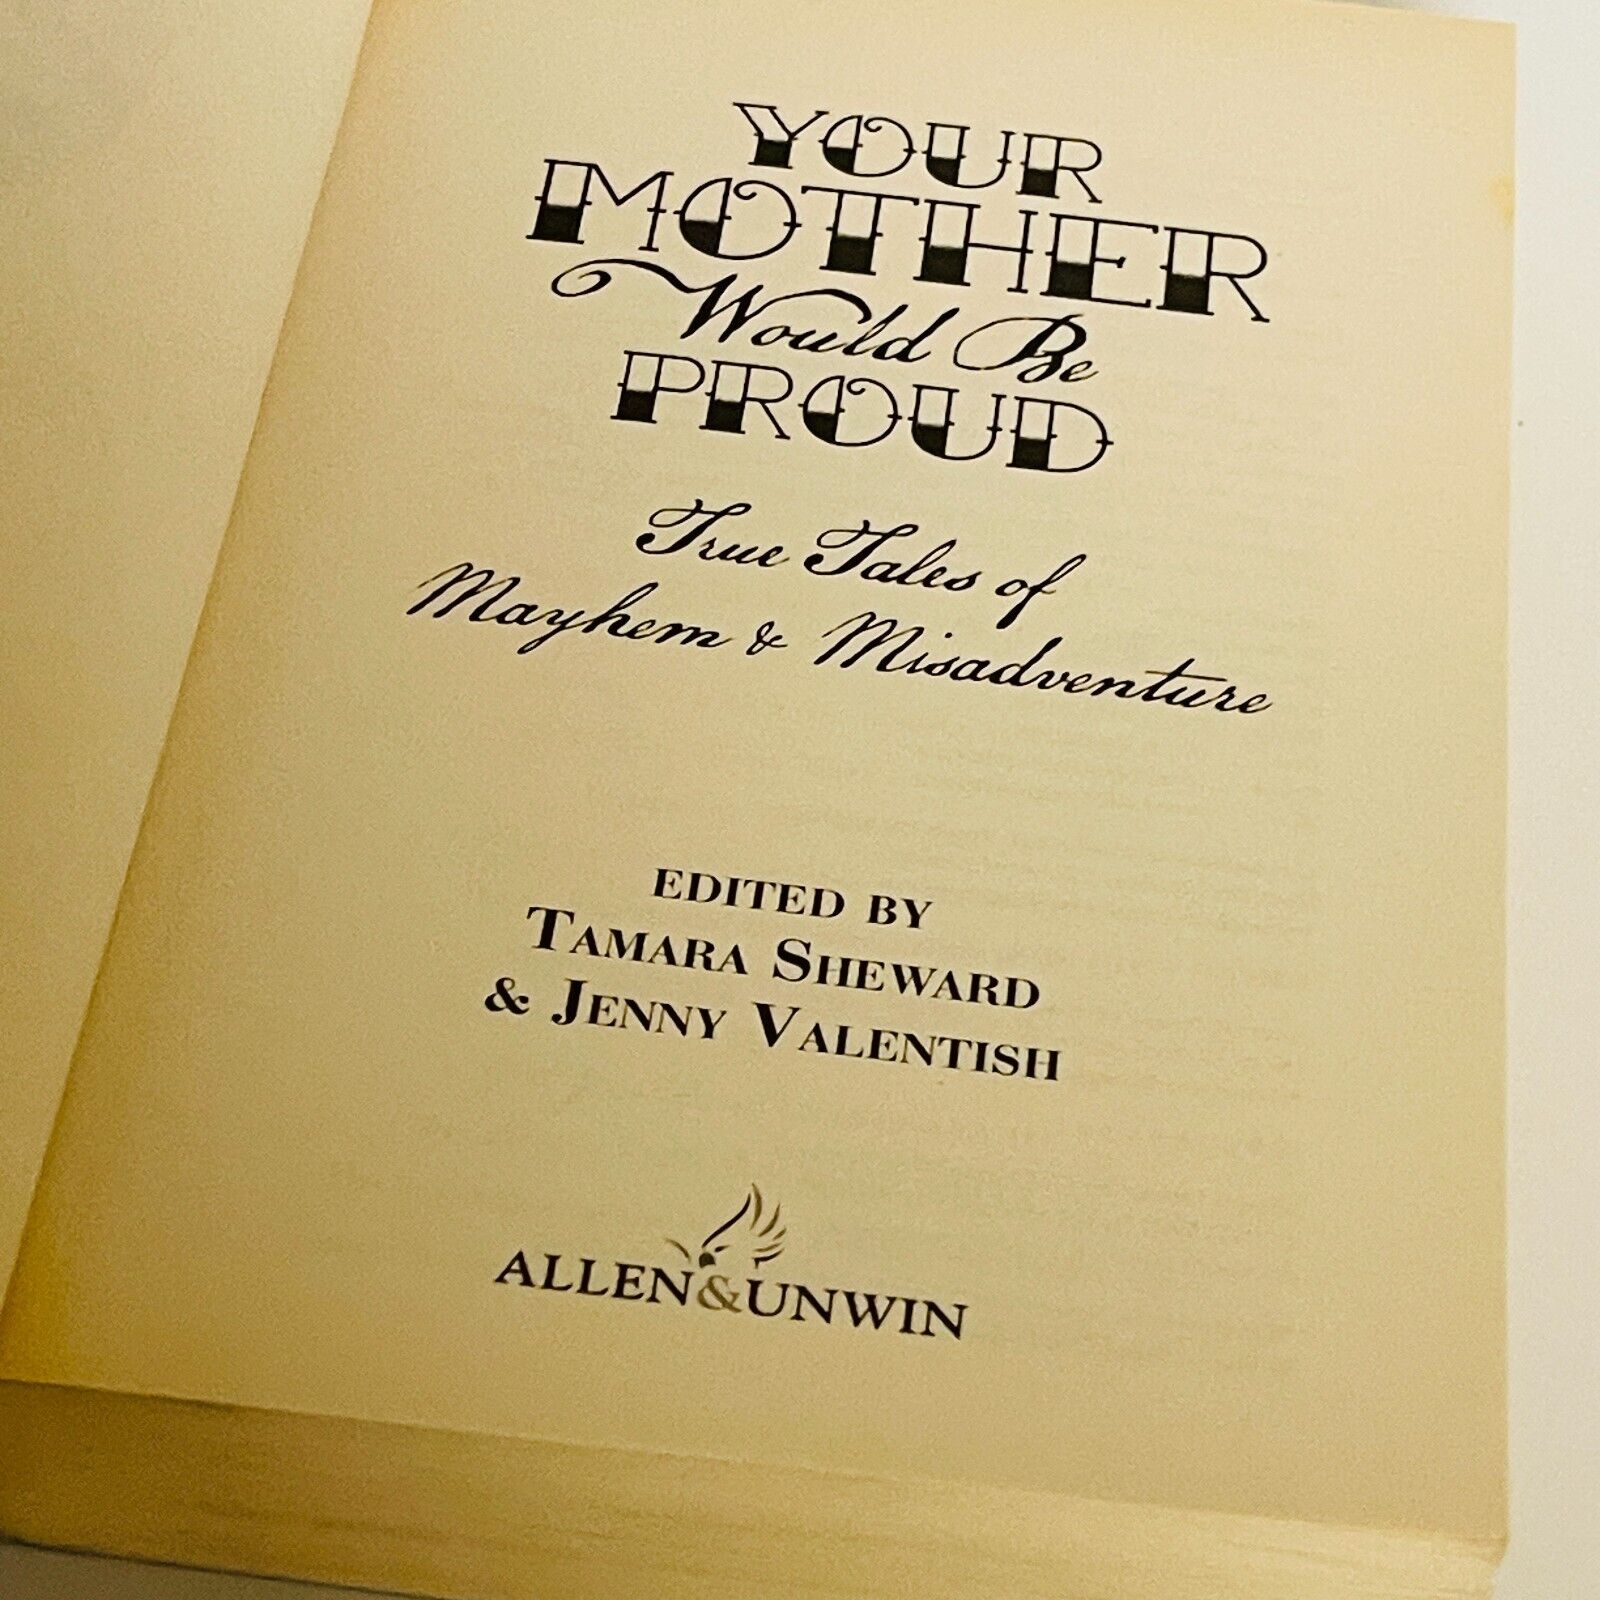 YOUR
MOTHER
Would Be
PROUD
True Tales of
Mayhem & Misadventure
EDITED BY
TAMARA SHEWARD
& JENNY VALENTISH
ALLEN&UNWIN